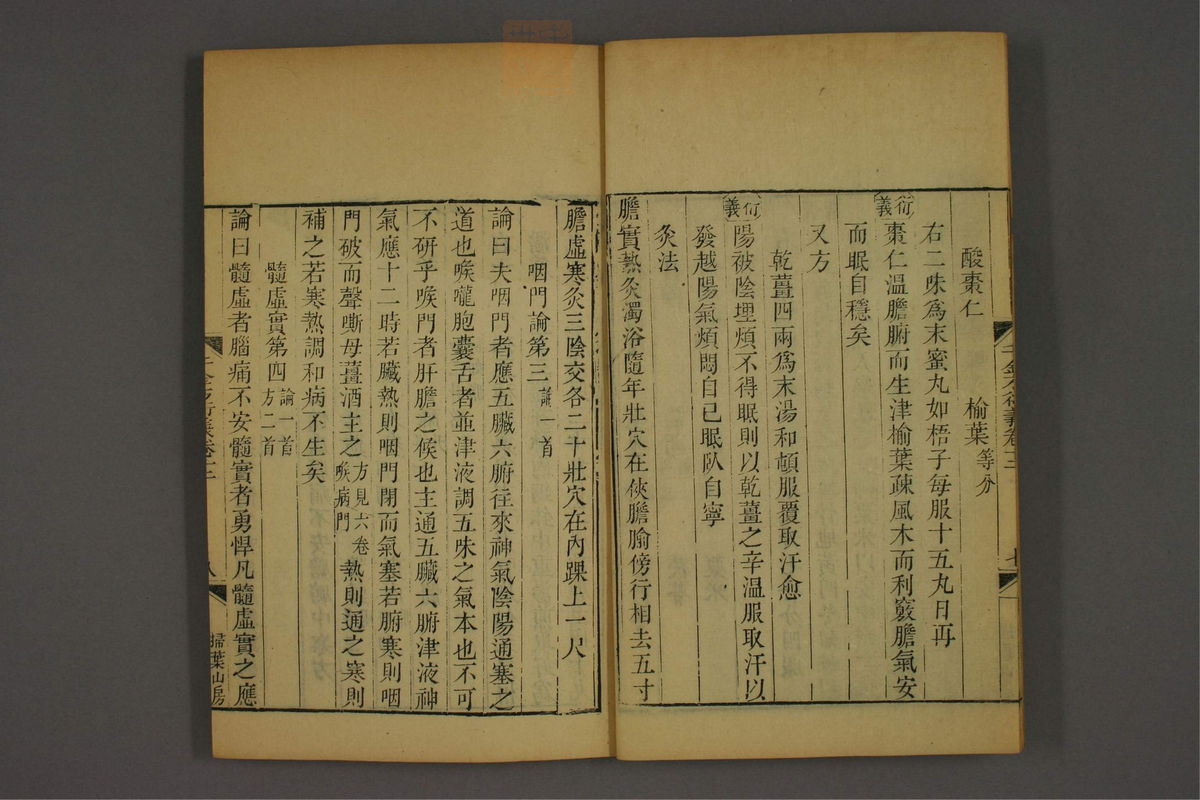 酸棗仁　榆葉等分
右二味爲末蜜丸如梧子每服十五丸日再
衍義
棗仁溫膽腑而生津榆葉疎風木而利竅膽氣安
而眠自穩矣
又方
乾薑四兩爲末湯和頓服覆取汗愈
衍義
陽被陰埋煩不得眠則以乾薑之辛溫服取汗以
發越陽氣煩悶自已眠臥自寧
灸法
膽實熱灸濁浴隨年壯穴在俠膽腧傍行相去五寸
膽虛寒灸三陰交各二十壯穴在內踝上一尺
咽門論第三論一首
論曰夫咽門者應五臟六腑往來神氣陰陽通塞之
道也喉嚨胞囊舌者並津液調五味之氣本也不可
不研乎喉門者肝膽之候也主通五臟六腑津液神
氣應十二時若臟熱則咽門閉而氣塞若腑寒則咽
門破而聲嘶母薑酒主之方見六卷喉病門熱則通之寒則
補之若寒熱調和病不生矣
髓虛實第四論一首方二首
論曰髓虛者腦痛不安髓實者勇悍凡髓虛實之應
千金方衍義卷十二
八
掃葉山房